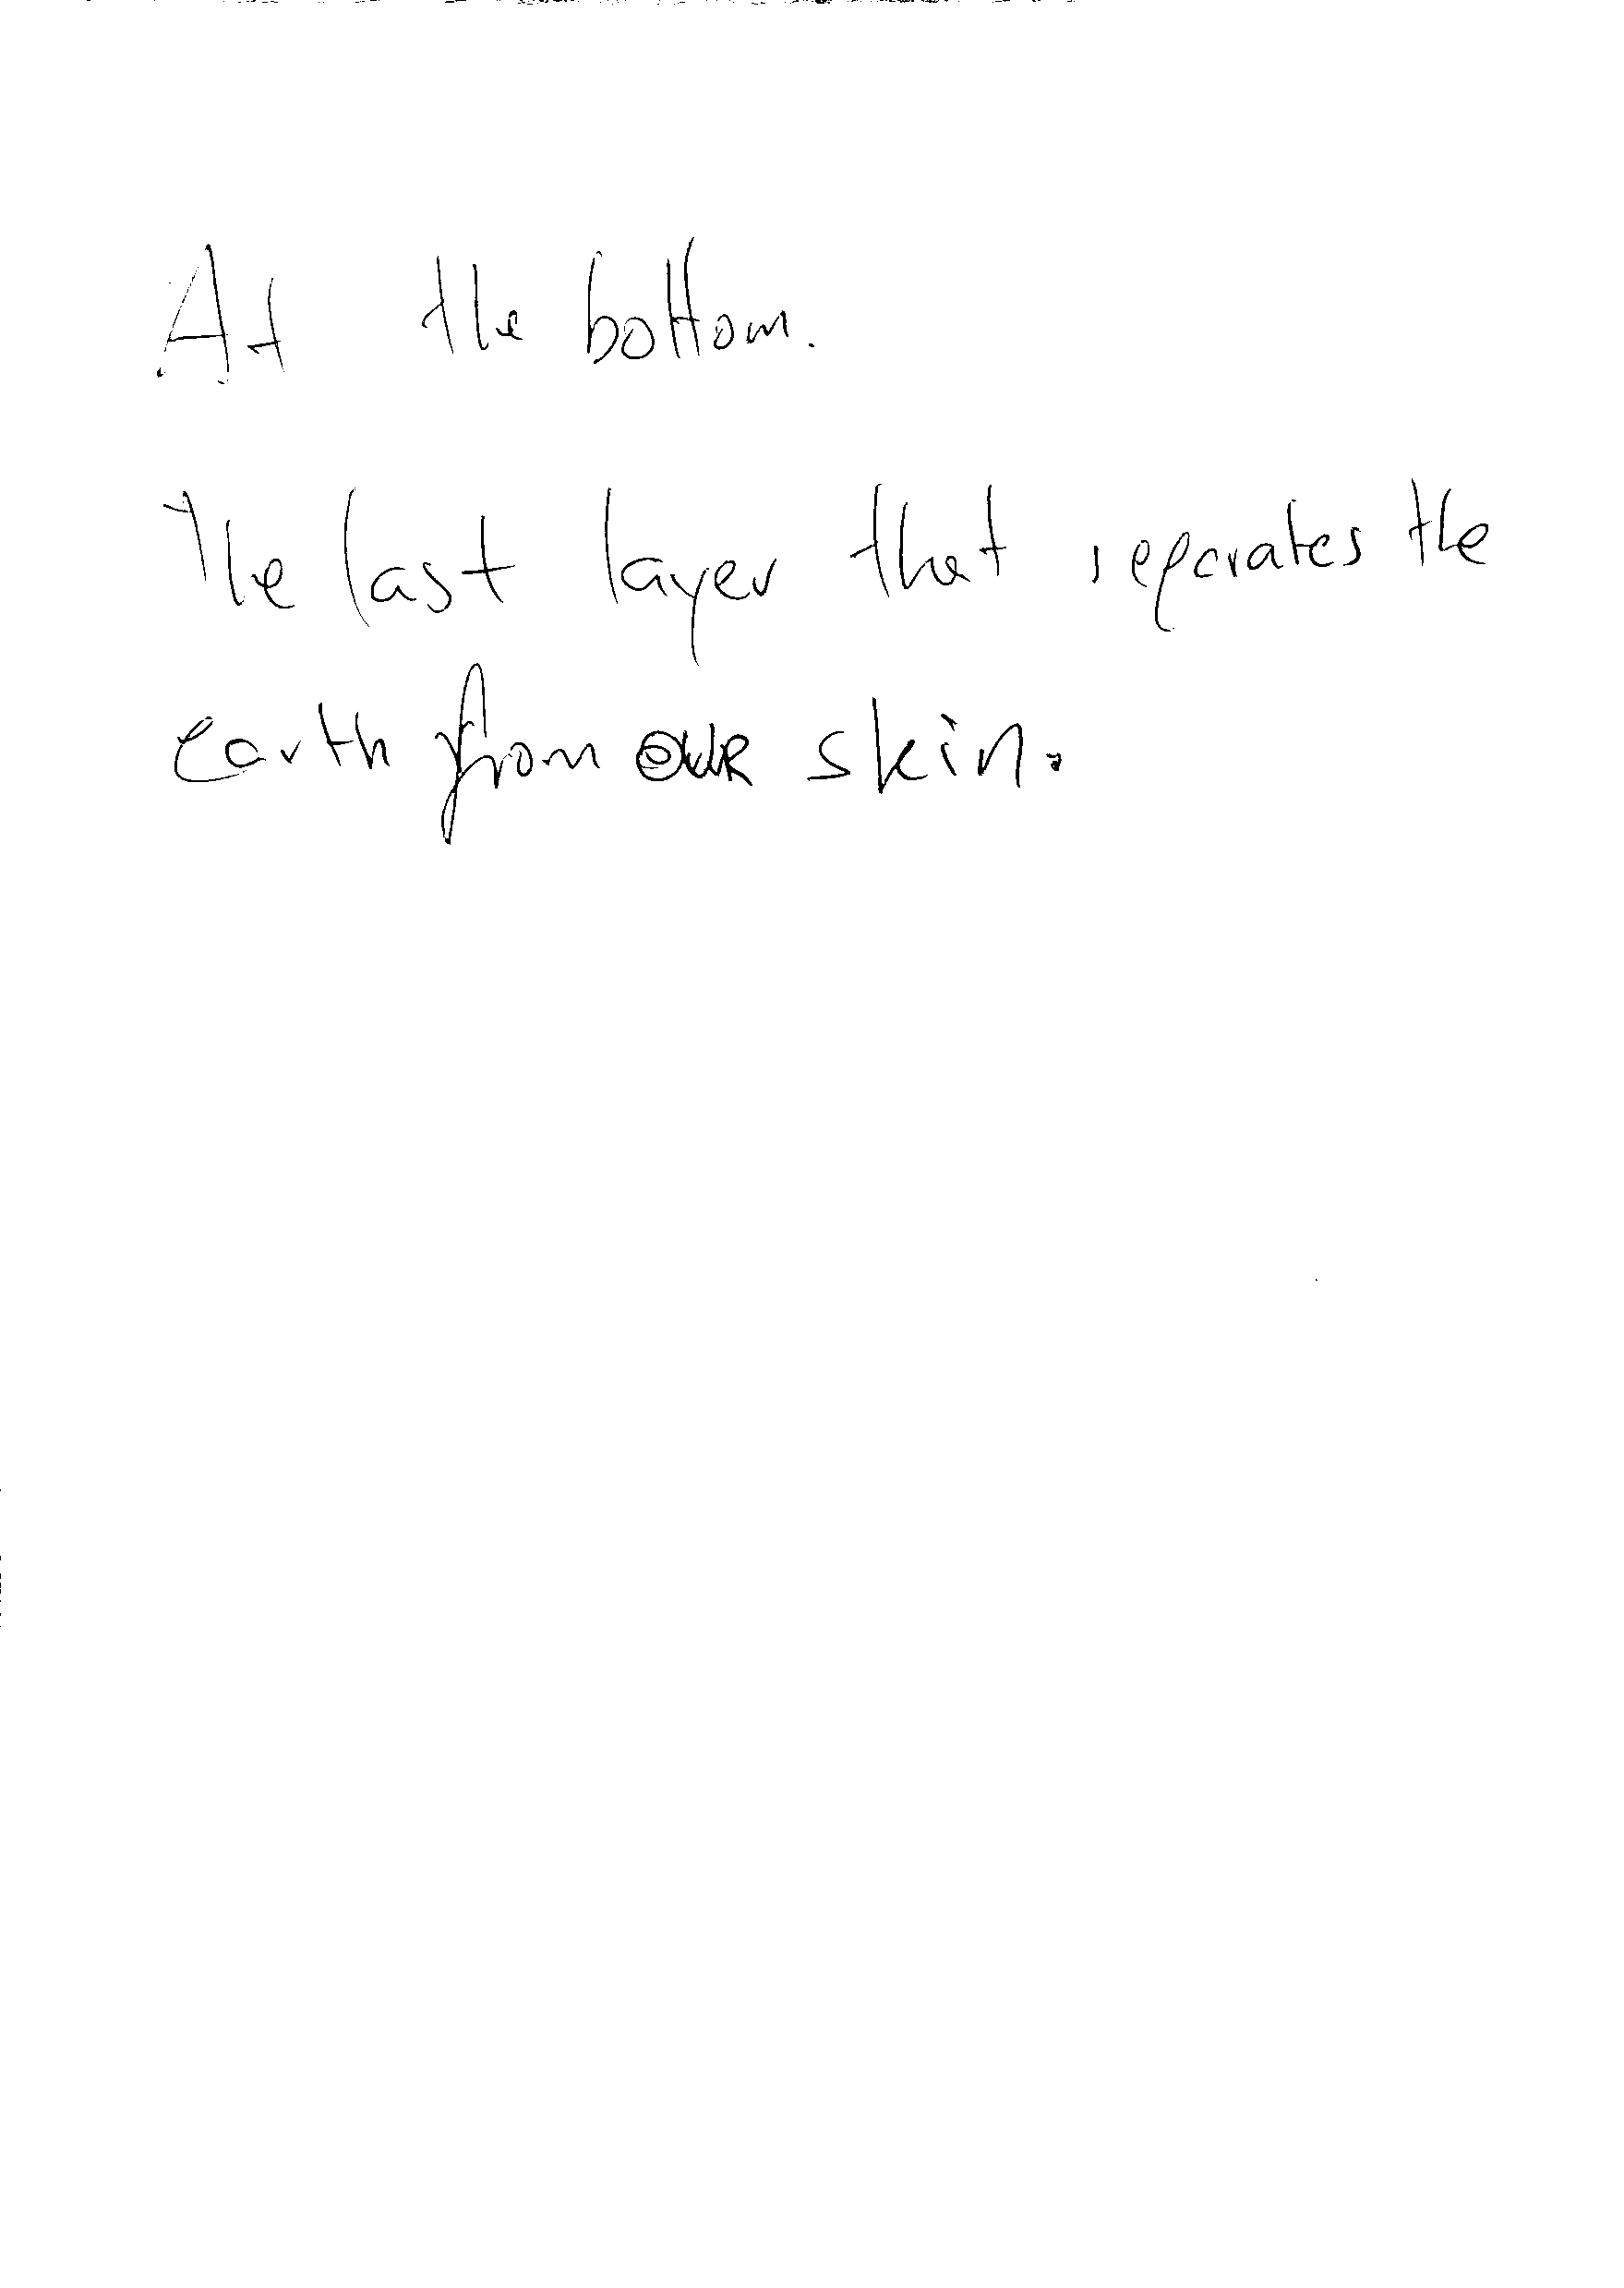 At the bottom.
The last layer that separates the
earth from our skin.